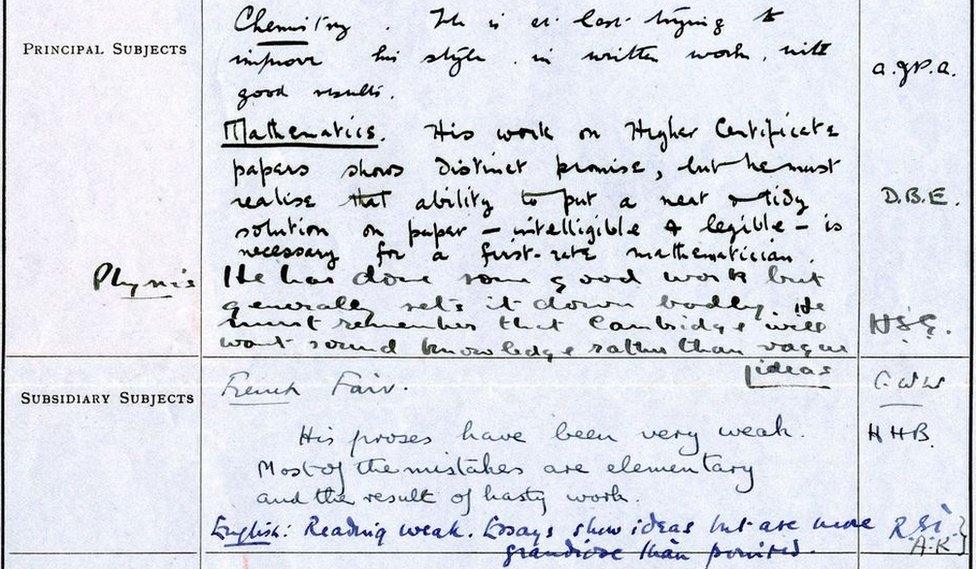 PRINCIPAL SUBJECTS
Chemistry. He is at last trying to
improve his style in written work, with
good results.
A.J.P.A.
Mathematics. His work on Higher Certificate
papers shows distinct promise, but he must
realise that ability to put a neat & tidy
solution on paper – intelligible & legible – is
necessary for a first-rate mathematician.
D.B.E.
Physics He has done some good work but
generally sets it down badly. He
must remember that Cambridge will
want sound knowledge rather than vague
ideas
H.S.G.
SUBSIDIARY SUBJECTS
French Fair.
C.W.W
His proses have been very weak.
Most of the mistakes are elementary
and the result of hasty work.
H H B.
English: Reading weak. Essays show ideas but are more
grandiose than
A.K.